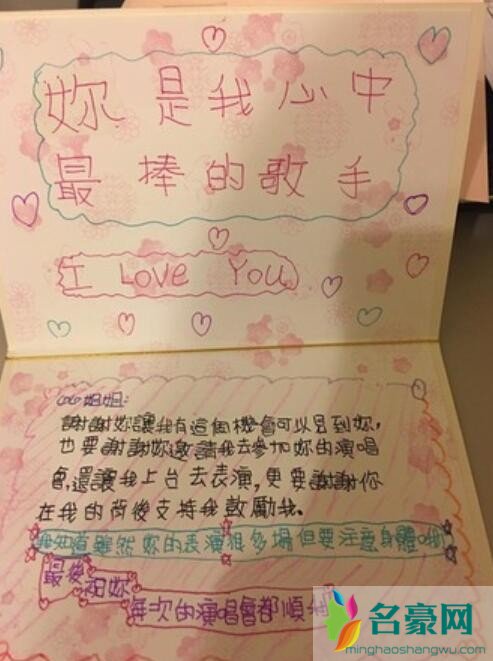 妳是我心中
最棒的歌手
I Love You
coco姐姐:
謝謝妳讓我有這個機會可以見到妳,
也要謝謝妳邀請我去參加妳的演唱
會,還讓我上台去表演,更要謝謝你
在我的背後支持我鼓勵我。
我知道雖然妳的表演很多場但要注意身體哦!
最後祝妳
每次的演唱會都順
名豪网
minghaoshangwu.com